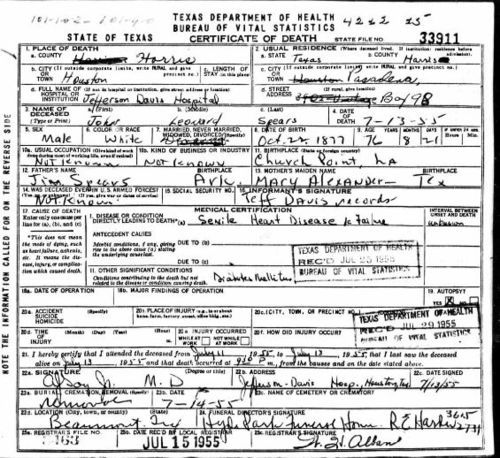 TEXAS DEPARTMENT OF HEALTH
BUREAU OF VITAL STATISTICS
4222 25
STATE OF TEXAS
CERTIFICATE OF DEATH
STATE FILE NO.
33911
1. PLACE OF DEATH
a. COUNTY
Harris
2. USUAL RESIDENCE (Where deceased lived. If institution: residence before admission).
a. STATE
Texas
b. COUNTY
Harris
b. CITY (If outside corporate limits, write RURAL and give precinct no.)
OR
TOWN
Houston
c. LENGTH OF
STAY (in this place)
c. CITY (If outside corporate limits, write RURAL and give precinct no.)
OR
TOWN
Houston Pasadena,
d. FULL NAME OF (If not in hospital or institution, give street address or location)
HOSPITAL OR
INSTITUTION
Jefferson Davis Hospital
d. STREET
ADDRESS
Box 98
3. NAME OF
DECEASED
a. (First)
John
b. (Middle)
Leonard
c. (Last)
Spears
4. DATE
OF
DEATH
7-13-55
5. SEX
Male
6. COLOR OR RACE
White
7. MARRIED, NEVER MARRIED,
WIDOWED, DIVORCED (Specify)
8. DATE OF BIRTH
Oct. 22 1877
9. AGE
YEARS
MONTHS
DAYS
76 8 21
10a. USUAL OCCUPATION
Not Known
10b. KIND OF BUSINESS OR INDUSTRY
Not Known
11. BIRTHPLACE (State or foreign country)
Church Point, La
12. FATHER'S NAME
BIRTHPLACE
Jim Spears
13. MOTHER'S MAIDEN NAME
BIRTHPLACE
Mary Alexander - Tex
14. WAS DECEASED EVER IN U.S. ARMED FORCES?
Not Known
15. SOCIAL SECURITY NO.
16. INFORMANT'S SIGNATURE
Jeff Davis records
17. CAUSE OF DEATH
MEDICAL CERTIFICATION
INTERVAL BETWEEN
ONSET AND DEATH
Enter only one cause per
line for (a), (b), and (c)
I. DISEASE OR CONDITION
DIRECTLY LEADING TO DEATH (a)
Senile Heart Disease & Failure
unknown
This does not mean
the mode of dying, such
as heart failure, asthenia,
etc. It means the disease,
injury, or complication
which caused death.
ANTECEDENT CAUSES
Morbid conditions, if any, giving
rise to the above cause (a) stating
the underlying cause last.
DUE TO (b)
DUE TO (c)
TEXAS DEPARTMENT OF HEALTH
REC'D JUL 25 1955
BUREAU OF VITAL STATISTICS
II. OTHER SIGNIFICANT CONDITIONS
Conditions contributing to the death but not
related to the disease or condition causing death.
Diabetes Mellitus
18a. DATE OF OPERATION
18b. MAJOR FINDINGS OF OPERATION
19. AUTOPSY
YES NO
20a. ACCIDENT
SUICIDE
HOMICIDE
20b. PLACE OF INJURY
20c. (CITY, TOWN, OR PRECINCT NO.)
TEXAS DEPARTMENT OF HEALTH
REC'D JUL 29 1955
BUREAU OF VITAL STATISTICS
20d. TIME
OF
INJURY
(Month) (Day) (Year)
20e. INJURY OCCURRED
WHILE AT WORK
NOT WHILE AT WORK
20f. HOW DID INJURY OCCUR?
21. I hereby certify that I attended the deceased from July 11 1955 to July 13 1955 that I last saw the deceased
alive on July 13, 1955 and that death occurred at m., from the causes and on the date stated above.
22a. SIGNATURE
M.D
22b. ADDRESS
Jefferson-Davis Hosp, Houston, Tex
22c. DATE SIGNED
7/13/55
23a. BURIAL, CREMATION, REMOVAL (Specify)
Removal
23b. DATE
7-14-55
23c. NAME OF CEMETERY OR CREMATORY
23d. LOCATION (City, town, or county) (State)
Beaumont, Tex
24. FUNERAL DIRECTOR'S SIGNATURE
Hyde Park Funeral Home
25a. REGISTRAR'S FILE NO.
25b. DATE REC'D BY LOCAL REGISTRAR
JUL 15 1955
25c. REGISTRAR'S SIGNATURE
NOTE THE INFORMATION CALLED FOR ON THE REVERSE SIDE